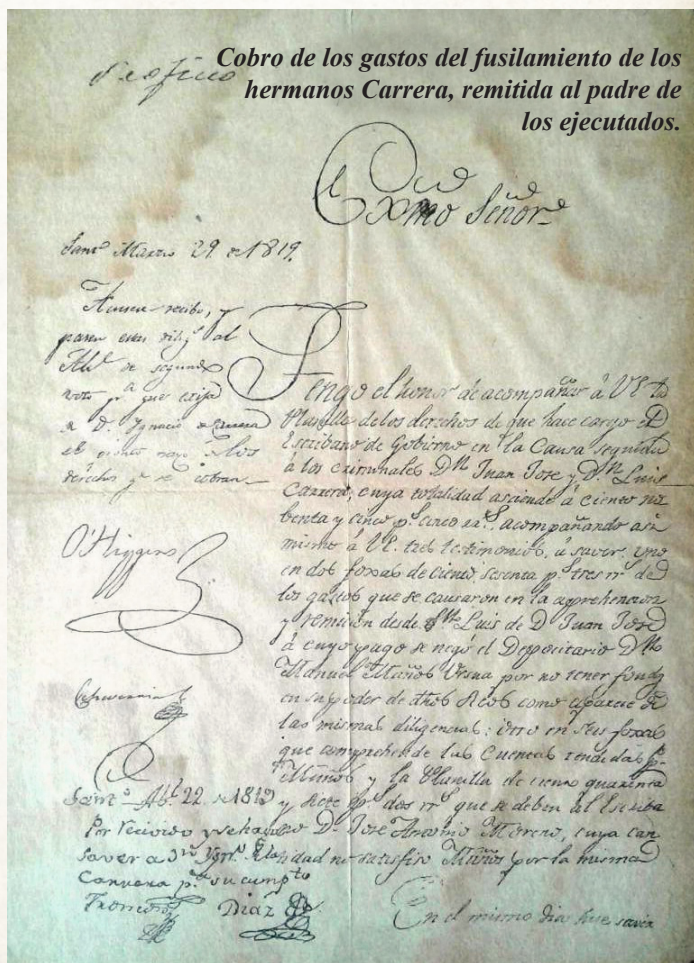 Cobro de los gastos del fusilamiento de los
hermanos Carrera, remitida al padre de
los ejecutados.
Exmo Señor
Sant.º Marzo 29. de 1819.
Acusese recibo, y
pasen estas dilig.s al
Alc.e de segundo
voto p.a que exija
a D. Ignacio Carrera
el pago de los
derechos q.e se cobran
O'Higgins
Echeverria
Tengo el honor de acompañar à VE la
Planilla de los derechos de que hace cargo el
Escribano de Gobierno en la Causa seguida
à los Criminales D.n Juan Jose y D.n Luis
Carrera, cuya totalidad asciende à ciento no
benta y cinco p.s cinco rr.s, acompañando asi
mismo à VE. tres testimonios, à saver, uno
en dos foxas de ciento, sesenta p.s tres rr.s de
los gastos que se causaron en la aprehencion
y remicion desde S.n Luis de D. Juan Jose
à cuyo pago se negó el Depocitario D.n
Manuel Muños Ursua por no tener fondos
en su poder de dhos Reos como aparece de
las mismas diligencias: otro en seis foxas
que comprehende las Cuentas rendidas p.r
Muños y la Planilla de ciento quarenta
y siete p.s dos rr.s que se deben al Escriba
no D.n Jose Antonio Moreno, cuya can
tidad no satisfiso Muños por la misma
Sant.º Ab.l 22. de 1819
Por recivido y
saver a D.n
Carrera p.a su cumpl.to
Diaz
En el mismo dia hise saver